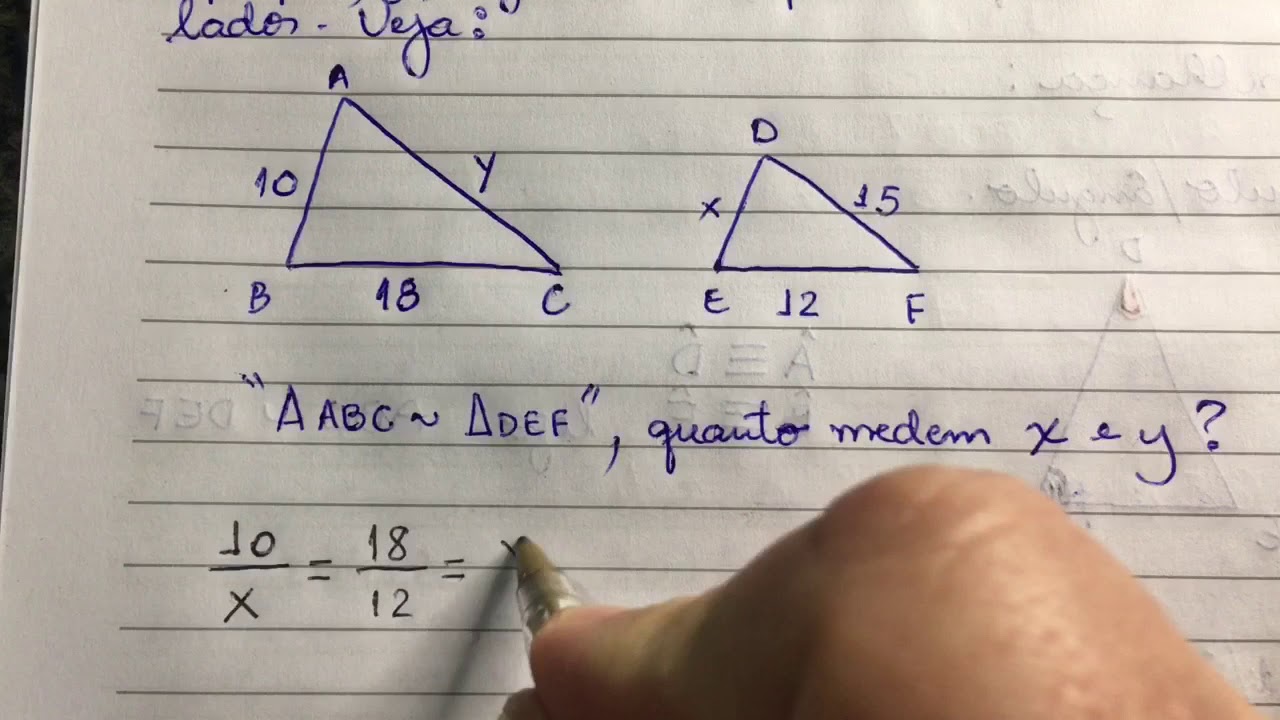 lados. Veja:
A
D
10
y
x
15
B
18
C
E
12
F
"ΔABC ~ ΔDEF", quanto medem x e y?
10/x = 18/12 =